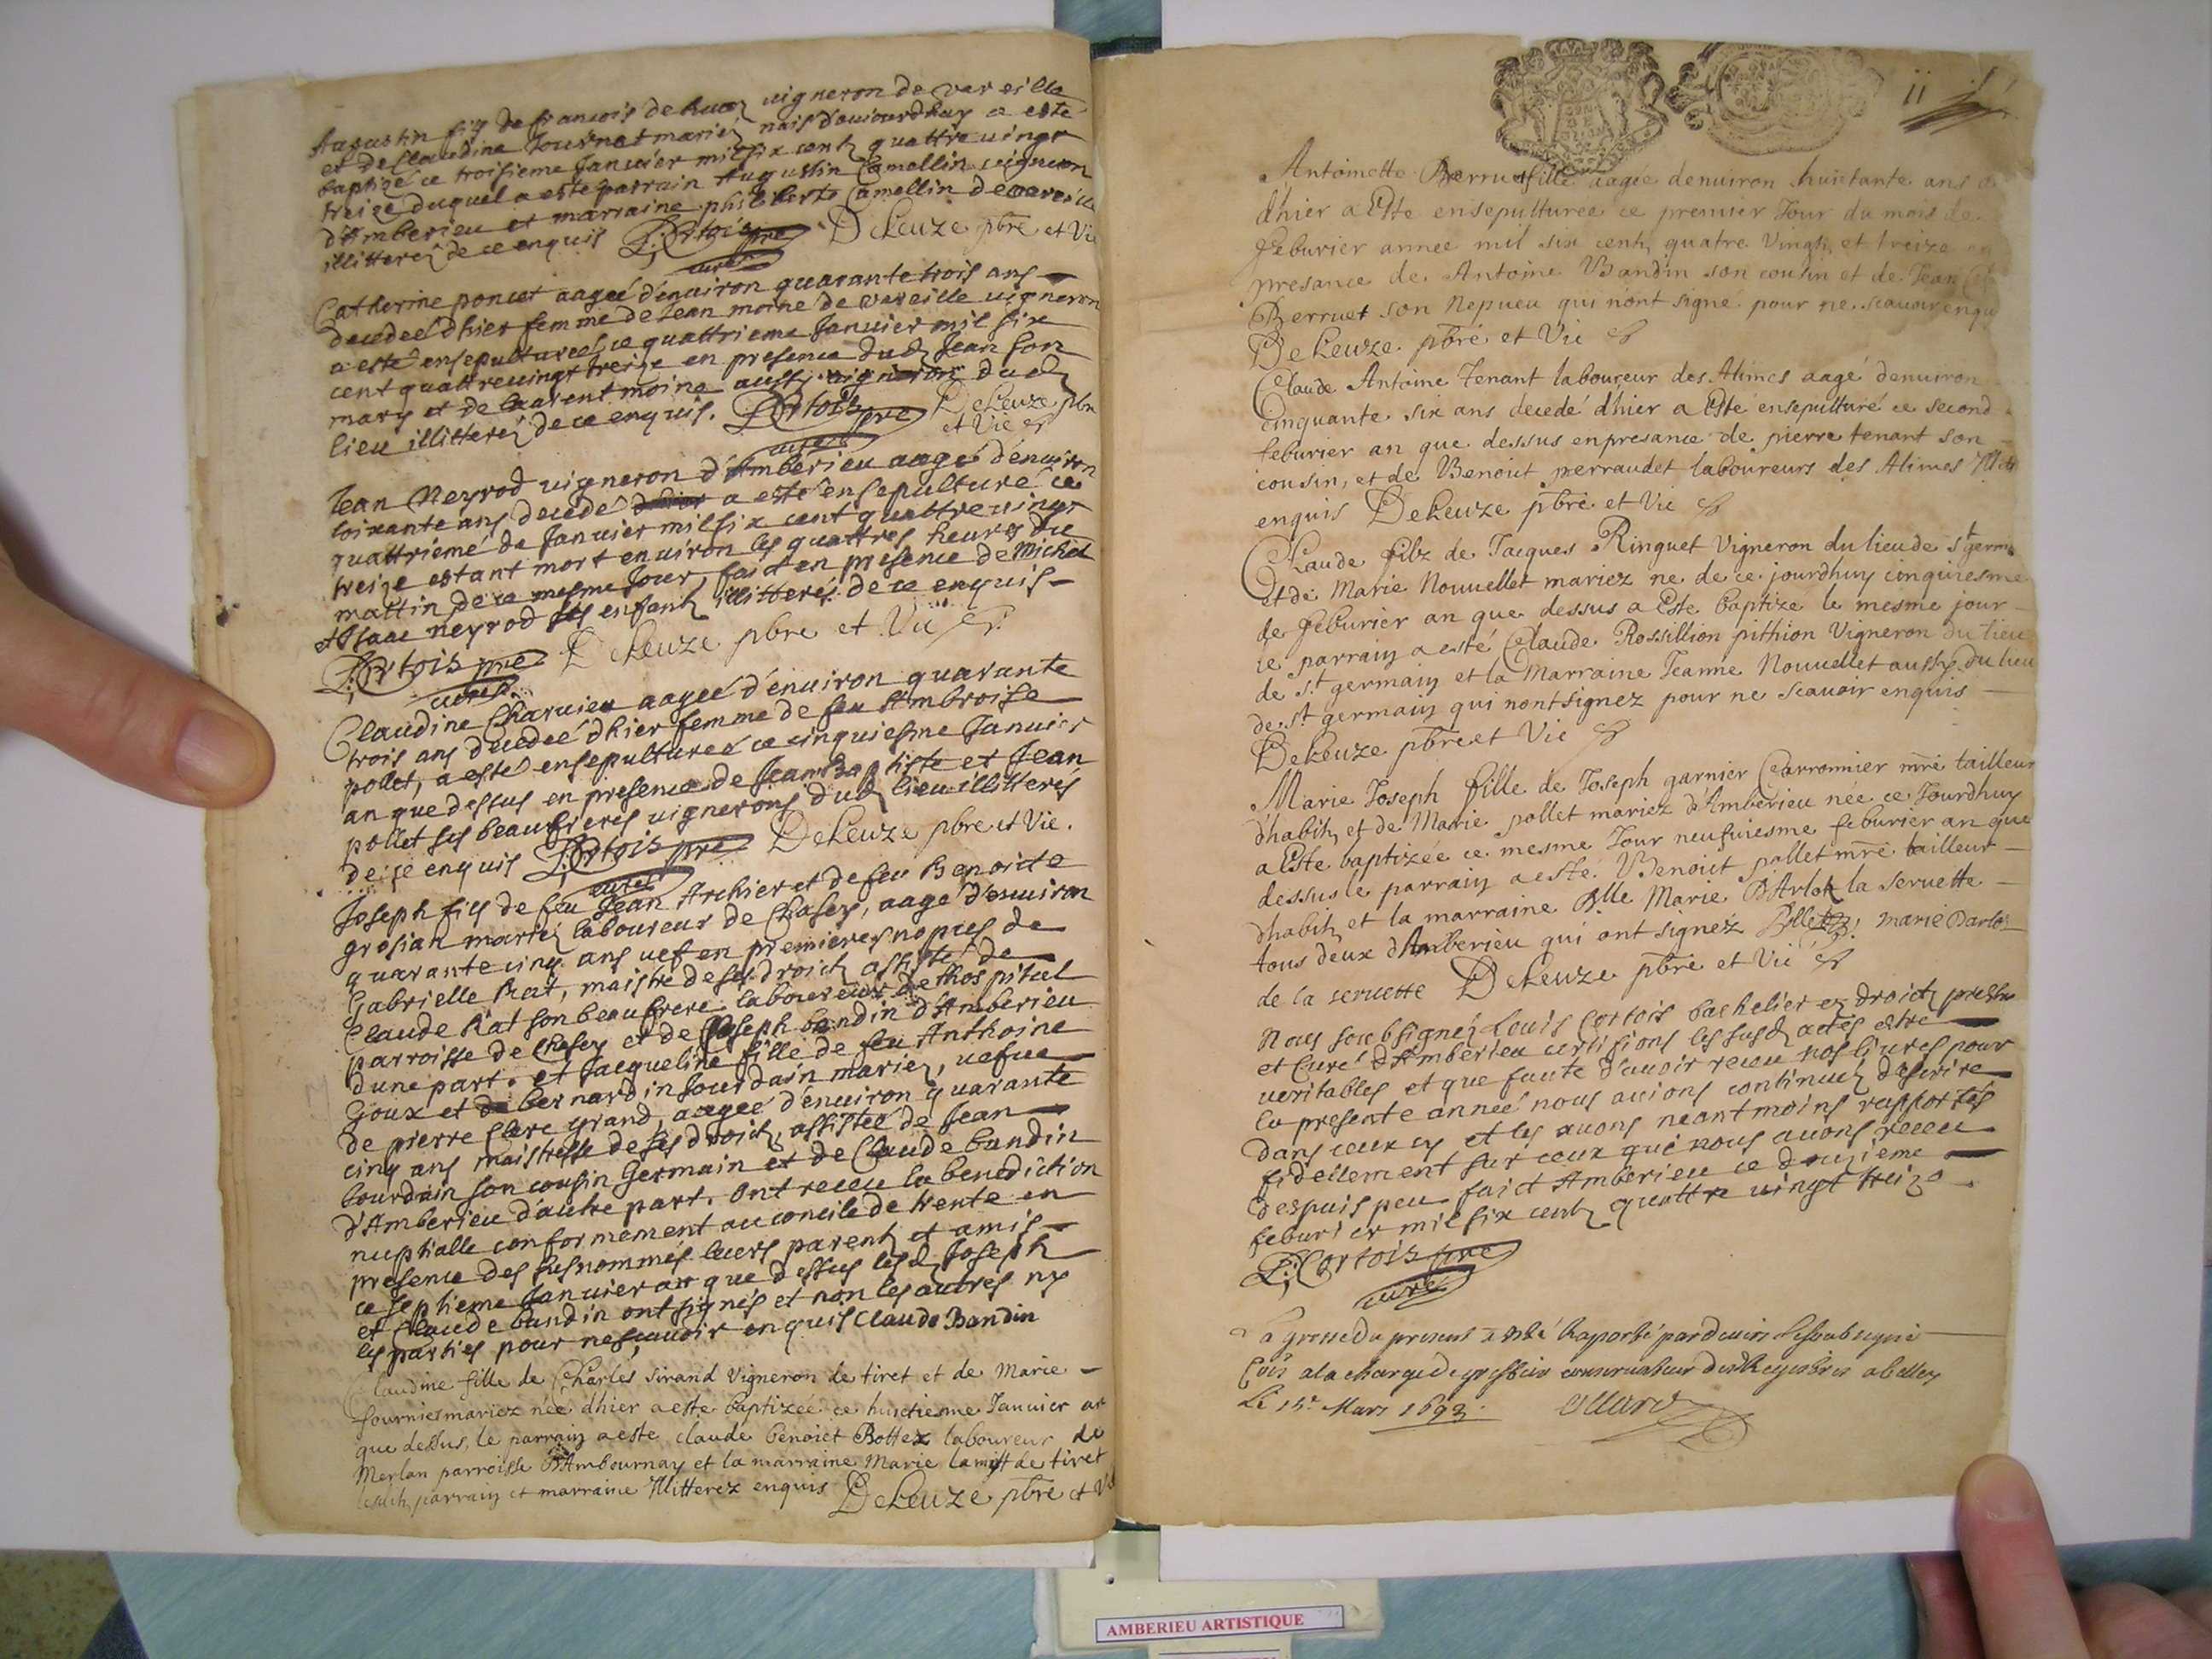 Augustin fils de francois de hucz vigneron de vareille
et de Claudine Tournet mariez nais daujourdhuy a esté
baptizé ce troisieme Januier mil six centz quattre uingt
treize duquel a esté parrain Augustin Camellin uigneron
d'Amberieu et marraine philiberte Camellin de vareille
illitterez de ce enquis L: Cortois pre curé DeLeuze pbre et Vic
Catherine poncet aageé d'enuiron quarante trois ans
decedeé dhier femme de Jean moine de vareille uigneron
a esté ensepultureé ce quattrieme Januier mil six
cent quattreuingt treize en presence dud Jean son
mary et de Laurent moine aussy uigneron dud
lieu illitterez de ce enquis. L: Cortois pre curé DeLeuze pbre
et Vic
Jean Neyrod uigneron d'Amberieu aagé d'enuiron
soixante ans decedé a esté ensepulturé ce
quattriemé de Januier mil six cent quattre uingt
treize estant mort enuiron les quattres heures du
mattin de ce mesme Jour, faict en presence de Michel
et Isaac neyrod ses enfantz illitterés de ce enquis
L: Cortois pre curé DeLeuze pbre et Vic
Claudine Charuieu aageé d'enuiron quarante
trois ans decedeé dhier femme de feu Ambroise
pollet, a esté ensepultureé ce cinquiesme Januier
an que dessus en presence de Jean Baptiste et Jean
pollet ses beaufreres uignerons dud lieu illitterés
de ce enquis L: Cortois pre curé DeLeuze pbre et Vic.
Joseph fils de feu Jean Archier et de feu Benoite
grosjan mariez laboureur de Chasey, aagé d'enuiron
quarante cinq ans uef en premieres nopces de
Gabrielle Rat, maistre de ses droictz assisté de
Claude Rat son beaufrere laboureur de lhospital
parroisse de Chasey et de Joseph bandin d'Amberieu
dune part. et Jacqueline fille de feu Anthoine
Goux et de bernardin Jourdain mariez, uefue
de pierre clerc grand, aageé d'enuiron quarante
cinq ans maistresse de ses droictz assisteé de Jean
bourdain son cousin Germain et de Claude bandin
d'Amberieu d'autre part. Ont receu la benediction
nuptialle conformement au concile de trente en
presence des susnommés leurs parentz et amis
ce septieme Januier an que dessus lesd Joseph
et Claude bandin ont signés et non les autres ny
les parties pour ne scauoir enquis Claude Bandin
Claudine fille de Charles sirand Vigneron de tiret et de Marie
fournier mariez née dhier a este baptizée ce huictiesme Januier an
que dessus, le parrain a este claude benoict Bottex laboureur de
Merlan parroisse D'Ambournay et la marraine Marie lamy de tiret
lesdictz parrain et marraine Illitterez enquis DeLeuze pbre et Vic
ii
Antoinette Berruet fille aagée denuiron huictante ans
dhier a Este ensepulturee ce premier Jour du mois de
Feburier annee mil six centz quatre Vingtz et treize en
presance de Antoine Bandin son cousin et de Jean
Berruet son Nepueu qui n'ont signé pour ne scauoir enquis
DeLeuze pbré et Vic
Claude Antoine Tenant laboureur des Alimes aagé denuiron
Cinquante six ans decedé dhier a Esté ensepulturé ce second
feburier an que dessus en presance de pierre tenant son
cousin, et de Benoict perraudet laboureurs des Alimes
enquis DeLeuze pbre et Vic
Claude filz de Jacques Ringuet Vigneron du lieu de st germain
et de Marie Nouuellet mariez ne de ce jourdhuy cinquiesme
de feburier an que dessus a Este baptizé le mesme jour
le parrain a esté Claude Rossillion pithion Vigneron du lieu
de st germain et la Marraine Jeanne Nouuellet aussy du lieu
de st germain qui nont signez pour ne scauoir enquis
DeLeuze pbre et Vic
Marie Joseph fille de Joseph garnier Charronnier mre tailleur
d'habitz et de Marie pollet mariez d'Amberieu née ce Jourdhuy
a Este baptizée ce mesme Jour neufuiesme feburier an que
dessus le parrain a esté Benoict pollet mre tailleur
dhabitz et la marraine Dlle Marie D'Arlot la seruette
tous deux d'Amberieu qui ont signéz pollet marie Darlot
de la seruette DeLeuze pbre et Vic
Nous soubsignéz Louis Cortois bachelier ez droictz prestre
et Curé d'Amberieu certifions les susd actes estre
ueritables et que faute d'auoir receu nos liures pour
la presente anneé nous auions continuez descrire
dans ceux cy et les auons neantmoins rapportés
fidellement sur ceux que nous auons receu
despuis peu faict Amberieu ce douzieme
feburier mil six centz quattre uingt treize.
L: Cortois pre
curé
La grosse du present a esté Raporté pardeuers soubsigné
Cois a la charge de greffier conseruateur desd Registres a belley
Le 15e Mars 1693.
AMBERIEU ARTISTIQUE